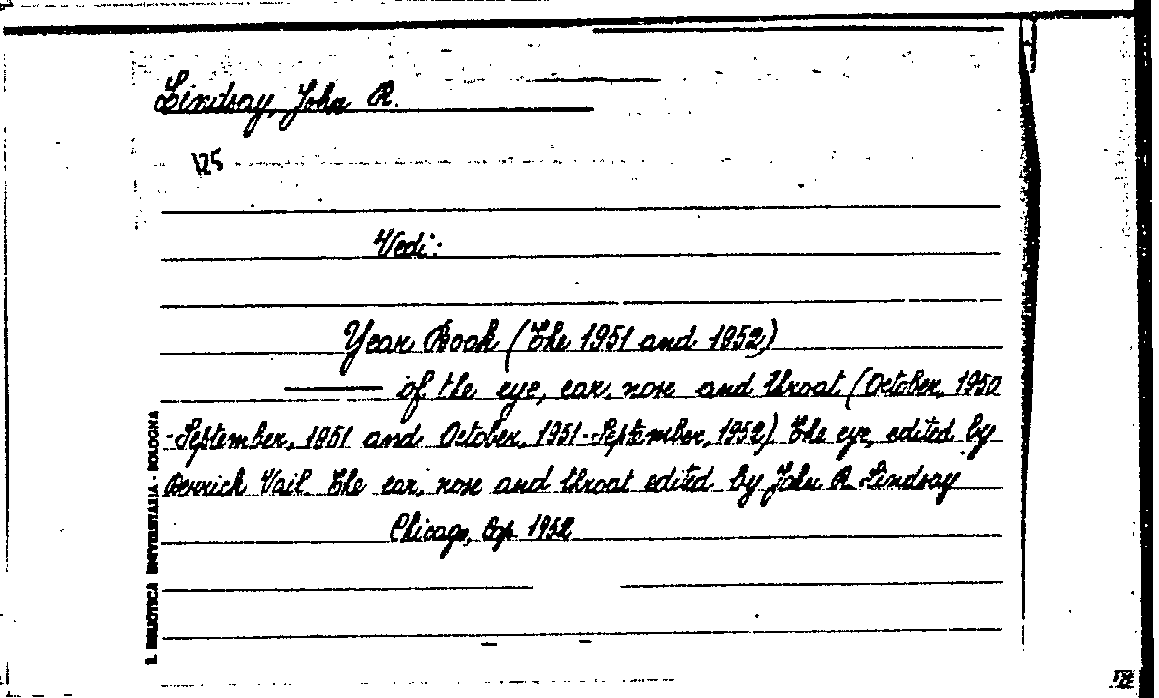 Lindsay, John R.
125
Vedi:
Year Book (The 1951 and 1952)
——— of the eye, ear, nose and throat (October, 1950
-September, 1951 and October, 1951-September, 1952). The eye, edited by
Derrick Vail. The ear, nose and throat edited by John R. Lindsay
Chicago, Cop. 1952
R. BIBLIOTECA UNIVERSITARIA - BOLOGNA